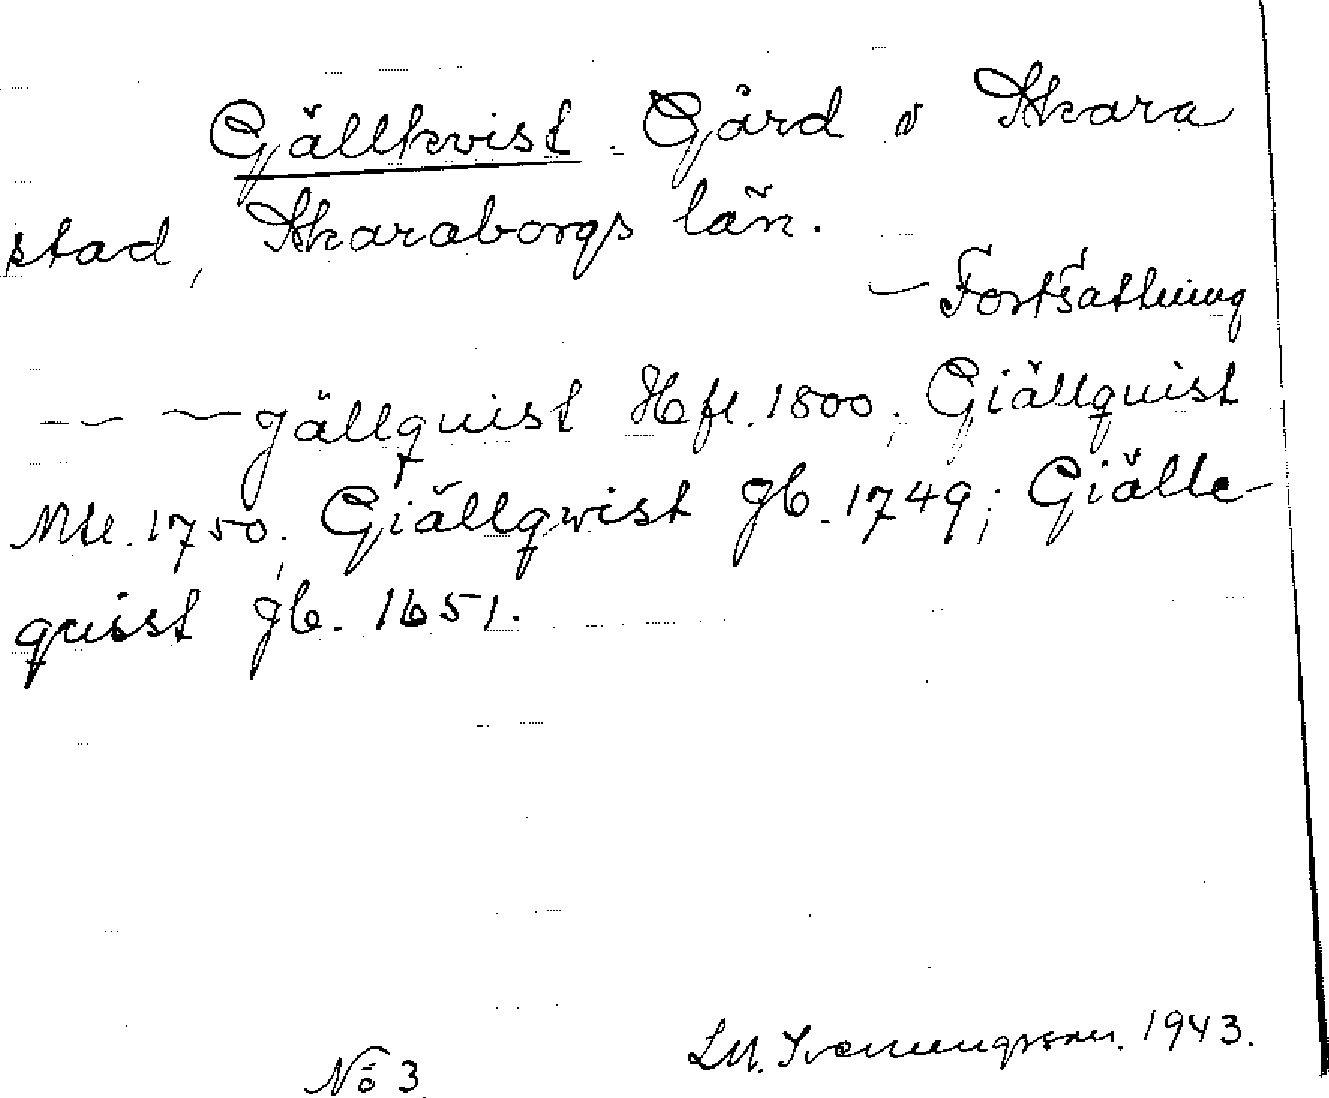 Gällkvist. Gård i Skara
stad, Skaraborgs län.
— Fortsättning
— — Jällquist Hfl. 1800; Giällquist
Mtl. 1750; Giällqwist Jb. 1749; Giälle
quist Jb. 1651.
L.M. Svenungsson. 1943.
No 3